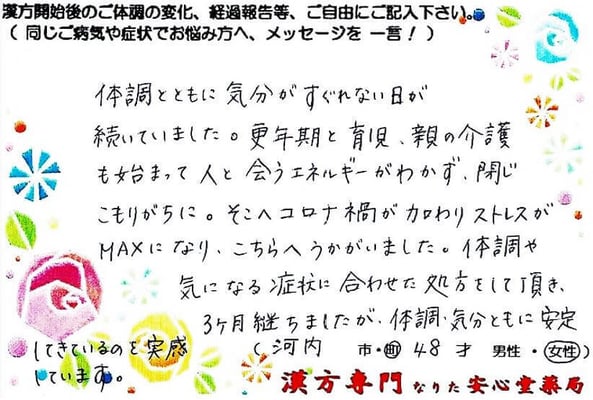 漢方開始後のご体調の変化、経過報告等、ご自由にご記入下さい。
（ 同じご病気や症状でお悩み方へ、メッセージを 一言！ ）
体調とともに気分がすぐれない日が
続いていました。更年期と育児、親の介護
も始まって人と会うエネルギーがわかず、閉じ
こもりがちに。そこへコロナ禍が加わりストレスが
MAXになり、こちらへうかがいました。体調や
気になる症状に合わせた処方をして頂き、
3ヶ月経ちましたが、体調・気分ともに安定
してきているのを実感
しています。
（ 河内 市・町 48 才 男性・女性）
漢方専門 なりた安心堂薬局